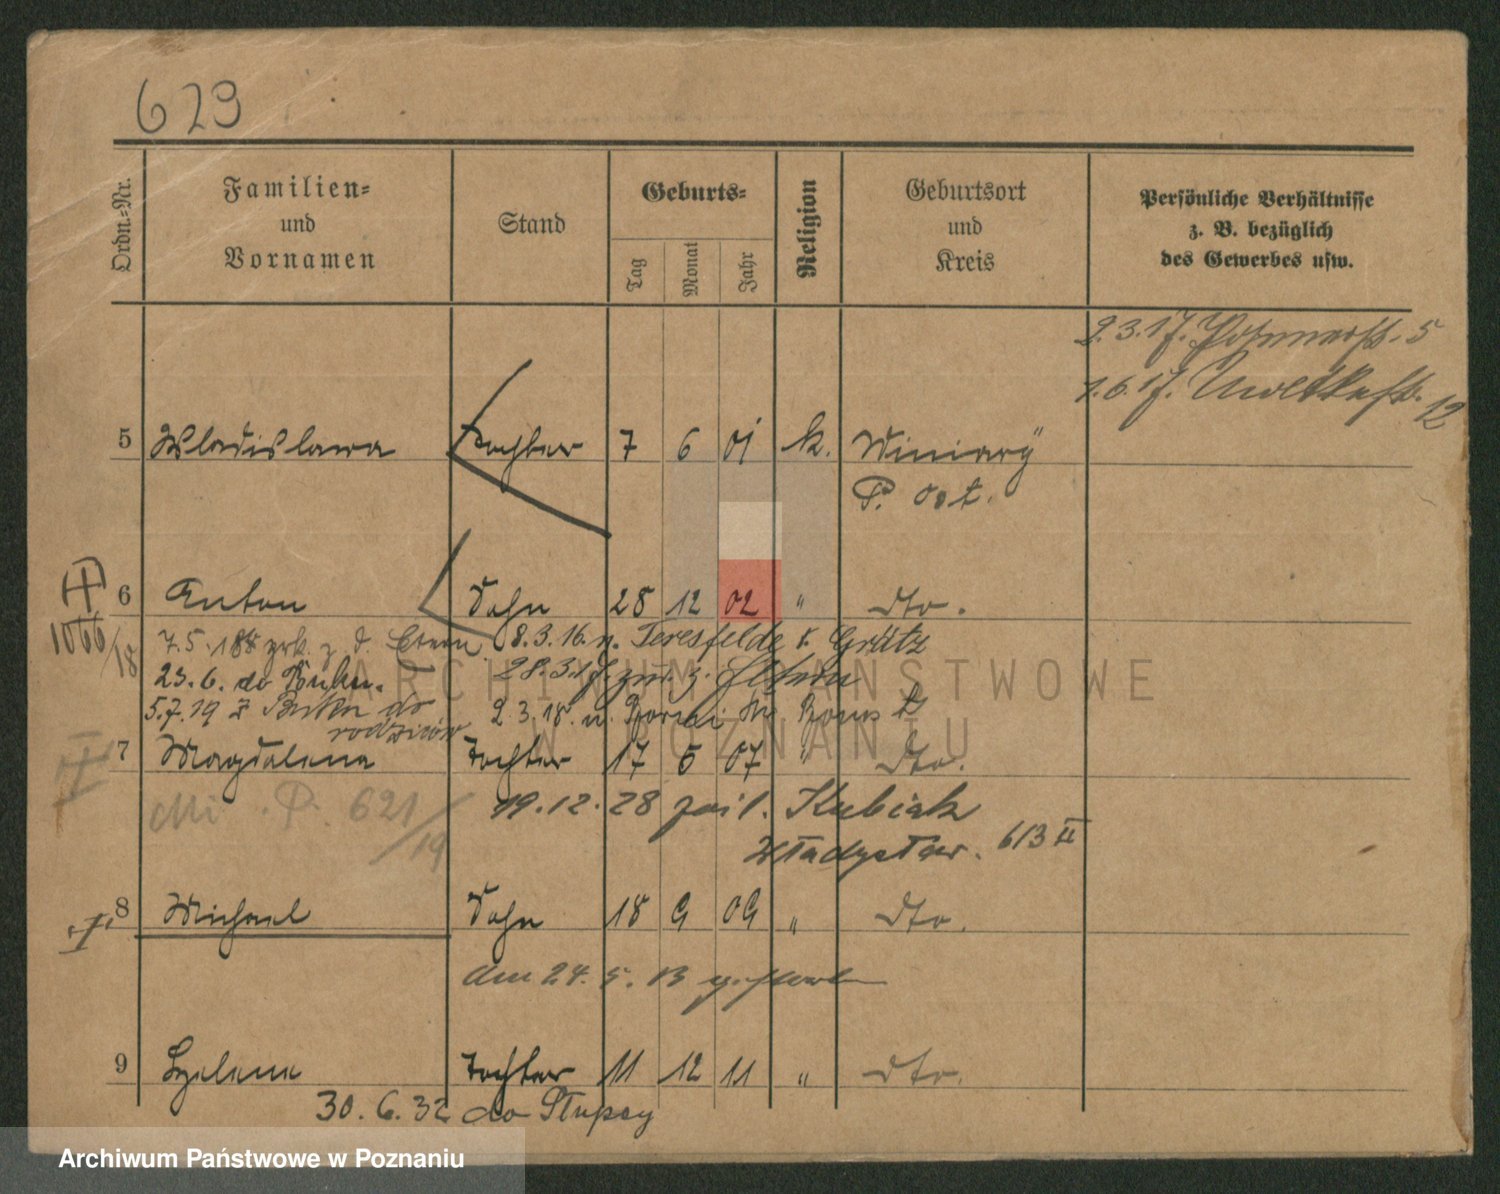 629
Ordn.-Nr.
Familien-
und
Vornamen
Stand
Geburts-
Tag
Monat
Jahr
Religion
Geburtsort
und
Kreis
Persönliche Verhältnisse
z. B. bezüglich
des Gewerbes usw.
2.3.17. 5
1.6.17. Moltkestr. 12
5 Wladislawa Tochter 7 6 01 k. Winiary
P. Ost.
6 Anton Sohn 28 12 02 " dto.
1066/18
7.5.188 z d. 8.3.16. n. Teresfelde k Grätz
23.6. do 28.3.17. zur. z. Eltern
5.7.19 z do 2.3.18. n.
rodziców
7 Magdalena Tochter 17 5 07 " dto.
P. 621/19
19.12.28 Kubiak
Władysław. 613 II
8 Michael Sohn 18 9 09 " dto.
am 24.5.13 gestorben
9 Helene Tochter 11 12 11 " dto.
30.6.32 do Słupcy
ARCHIWUM PAŃSTWOWE
W POZNANIU
Archiwum Państwowe w Poznaniu